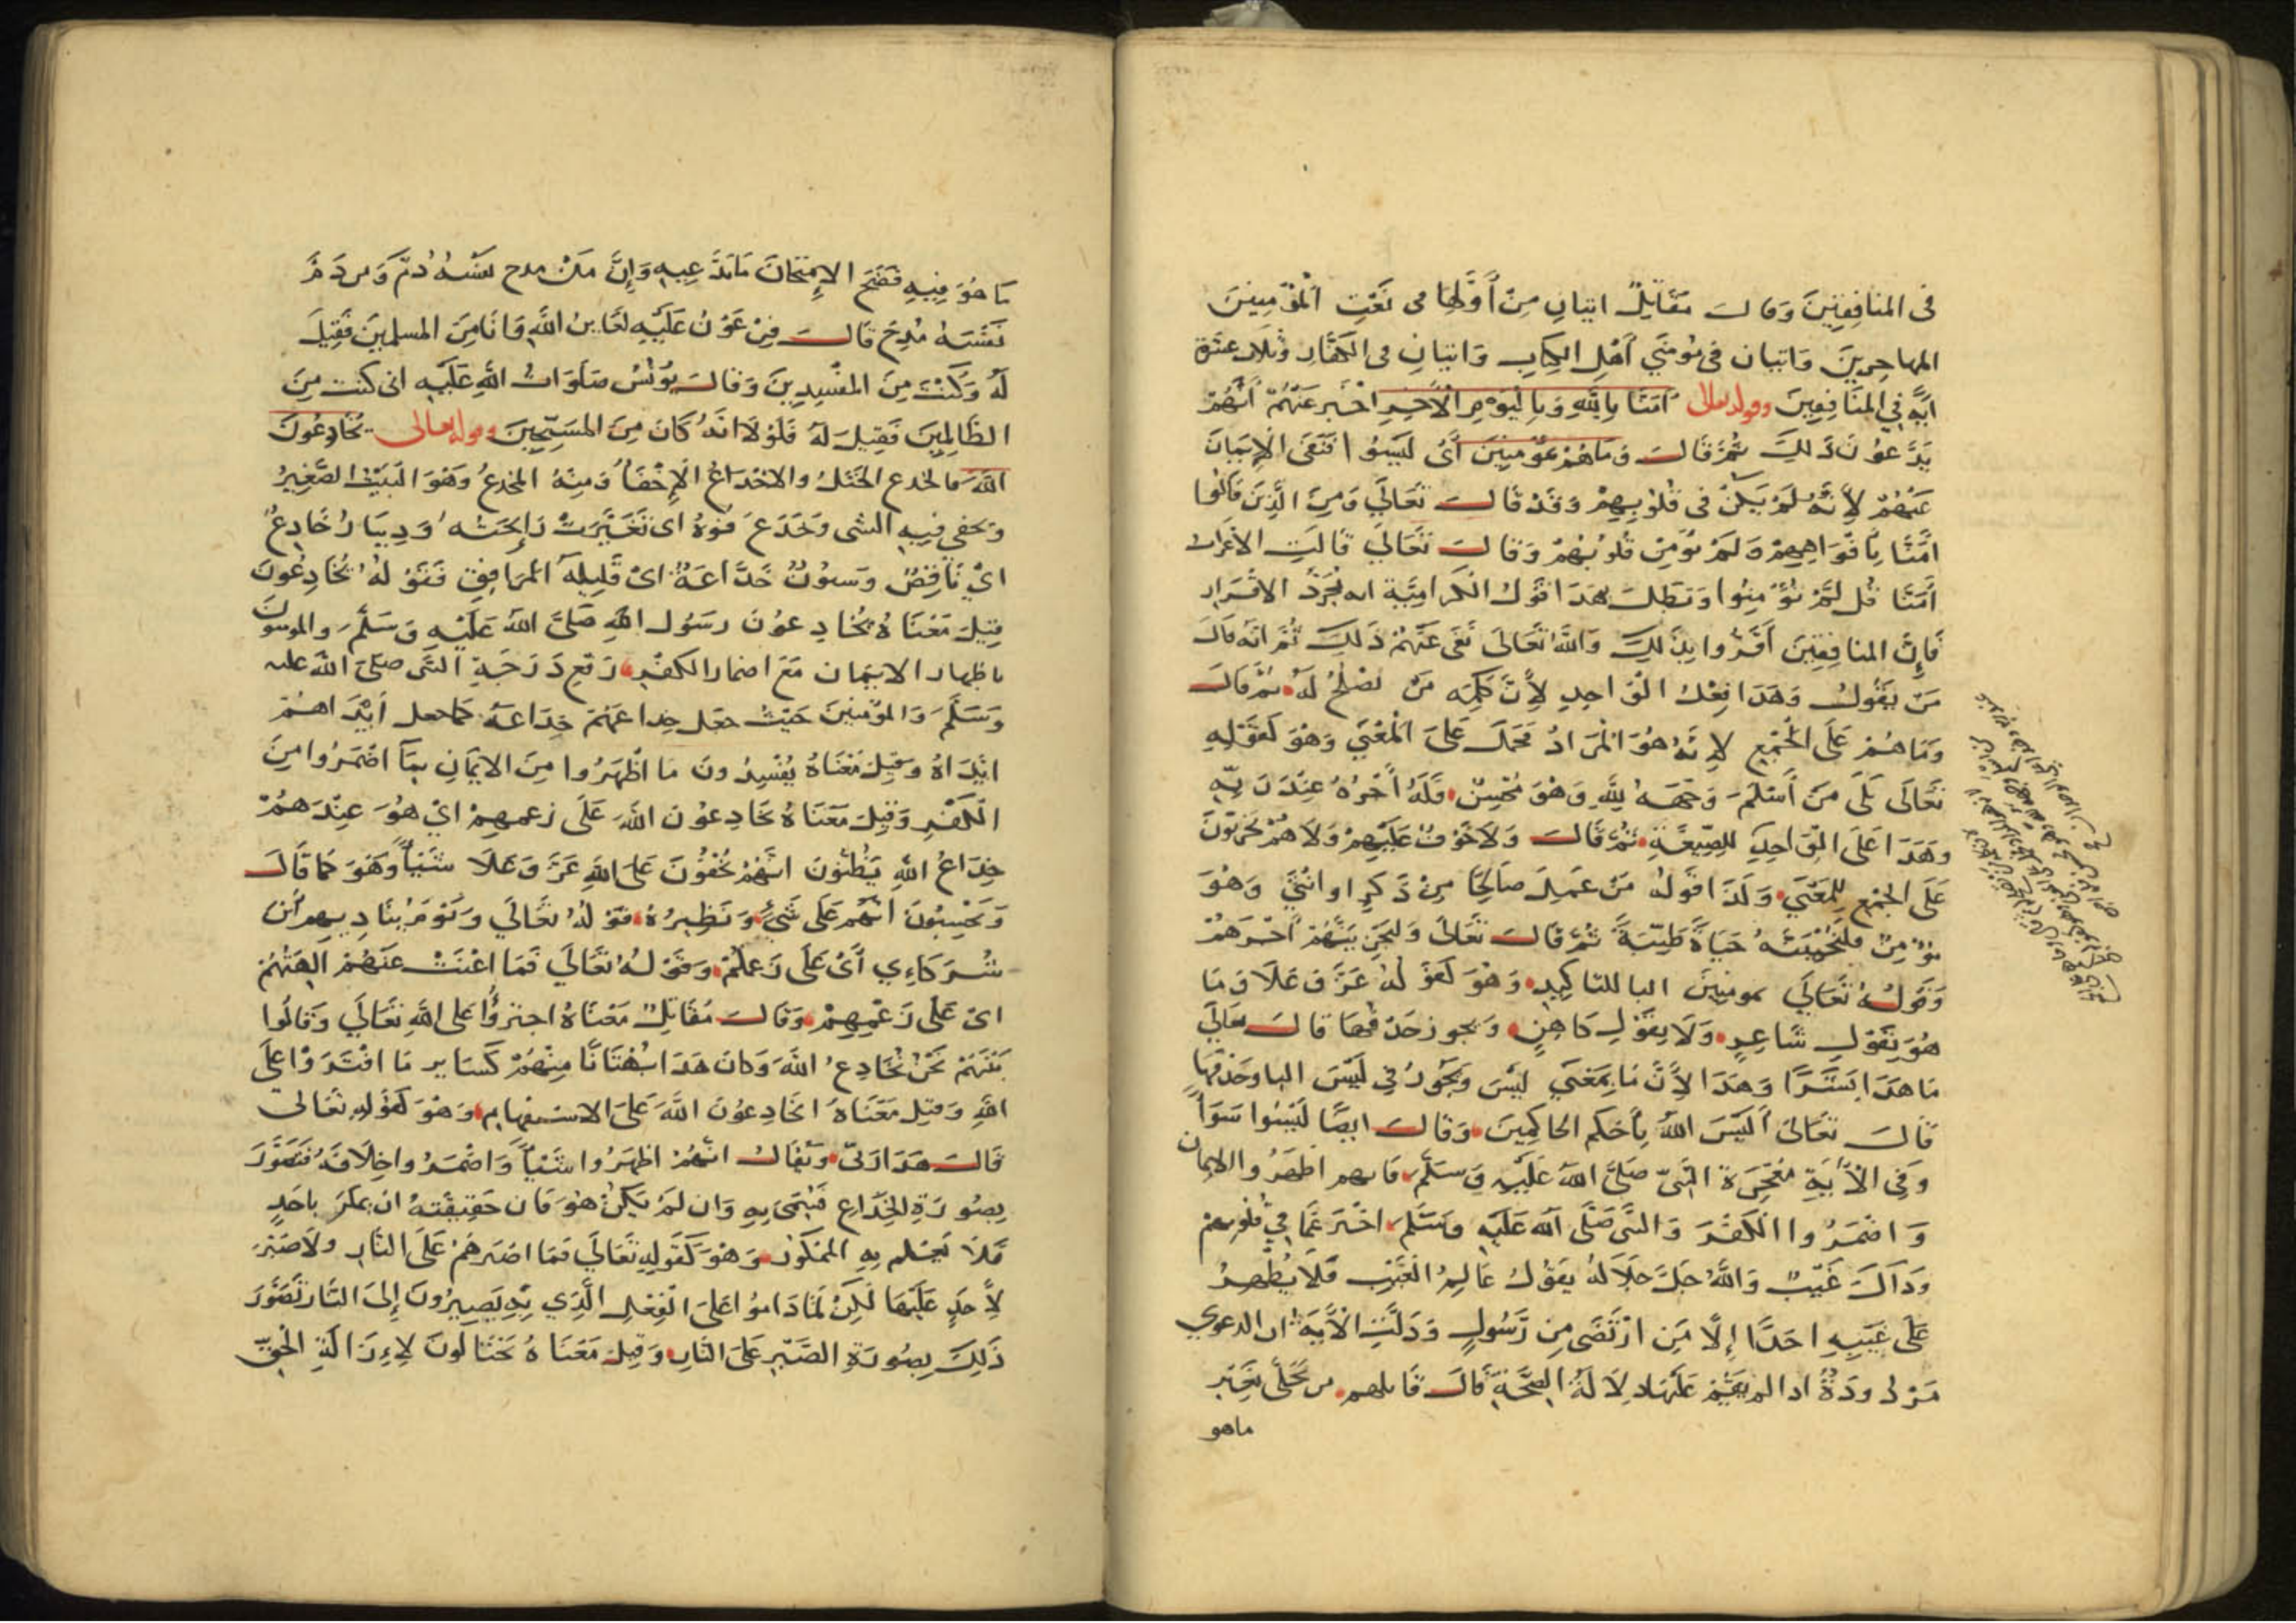 في المنافقين وقال مقاتل اثنان من أولها في نعت المؤمنين
المهاجرين واثنان في مؤمني أهل الكتاب واثنان في الكفار وثلاث عشرة
آية في المنافقين وقوله تعالى آمنا بالله وباليوم الآخر أخبر عنهم أنهم
يدعون ذلك ثم قال وما هم بمؤمنين أي ليسوا فنفى الإيمان
عنهم لأنه لم يكن في قلوبهم وقد قال تعالى ومن الذين قالوا
آمنا بأفواههم ولم تؤمن قلوبهم وقال تعالى قالت الأعراب
آمنا قل لم تؤمنوا وتبطل بهذا قول الكرامية انه مجرد الاقرار
فإن المنافقين أقروا بذلك والله تعالى نفى عنهم ذلك ثم انه قال
من يقول وهذا فعل الواحد لأن كلمة من تصلح له ثم قال
وما هم على الجمع لأنه هو المراد فحمل على المعنى وهو كقوله
تعالى بلى من أسلم وجهه لله وهو محسن فله أجره عند ربه
وهذا على الواحد للصيغة ثم قال ولا خوف عليهم ولا هم يحزنون
على الجمع للمعنى وكذا قوله من عمل صالحا من ذكر او انثى وهو
مؤمن فلنحيينه حياة طيبة ثم قال تعالى ولنجزينهم أجرهم
وقوله تعالى بمومنين البا للتاكيد وهو كقوله عز وعلا وما
هو بقول شاعر ولا بقول كاهن ويجوز حذفها قال تعالى
ما هذا بشرا وهذا لأن ما بمعنى ليس ويجوز في ليس البا وحذفها
قال تعالى أليس الله بأحكم الحاكمين وقال ايضا ليسوا سواء
وفي الآية معجزة النبي صلى الله عليه وسلم فانهم اظهروا الايمان
واضمروا الكفر والنبي صلى الله عليه وسلم اخبر عما في قلوبهم
وذاك غيب والله جل جلاله يقول عالم الغيب فلا يظهر
على غيبه احدا إلا من ارتضى من رسول ودلت الآية ان الدعوي
مردودة اذا لم يقم عليها دلالة الصحة قال قائلهم من تحلى بغير
ماهو
ما هو فيه فضح الإمتحان ما يدعيه وإن من مدح نفسه ذم ومن ذم
نفسه مدح قال فرعون عليه لعاين الله وانا من المسلمين فقيل
له وكنت من المفسدين وقال يونس صلوات الله عليه اني كنت من
الظالمين فقيل له فلولا انه كان من المسبحين وقوله تعالى يخادعون
الله فالخدع الختل والاخداع الإخفاء ومنه المخدع وهو البيت الصغير
ويخفى فيه الشى وخدع فوه اى تغيرت رايحته ودينار خادع
اي ناقص وسنون خداعة اى قليلة المرافق فقوله يخادعون
قيل معناه يخادعون رسول الله صلى الله عليه وسلم والمومنون
باظهار الايمان مع اضمار الكفر رفع درجة النبي صلى الله عليه
وسلم والمؤمنين حيث جعل خداعهم خداعه كما جعل ايذاهم
ايذاه وقيل معناه يفسدون ما اظهروا من الايمان بما اضمروا من
الكفر وقيل معناه يخادعون الله على زعمهم اي هو عندهم
خداع الله يظنون انهم يخفون على الله عز وعلا شيئا وهو كما قال
ويحسبون انهم على شيء ونظيره قوله تعالى ويوم يناديهم أين
شركاءي أي على زعمكم وقوله تعالى فما اغنت عنهم آلهتهم
اى على زعمهم وقال مقاتل معناه اجترؤا على الله تعالى وقالوا
بينهم نحن نخادع الله وكان هذا بهتانا منهم كساير ما افتروا على
الله وقيل معناه ايخادعون الله على الاستفهام وهو كقوله تعالى
قال هذا ربي ويقال انهم اظهروا شيئا واضمروا خلافه فتصور
بصورة الخداع فسمى به وان لم يكن هو فان حقيقته ان يمكر باحد
فلا يعلم به الممكور وهو كقوله تعالى فما اصبرهم على النار ولا صبر
لأحد عليها لكن لما داموا على الفعل الذي به يصيرون إلى النار تصور
ذلك بصورة الصبر على النار وقيل معناه يحتالون لإزالة الحق